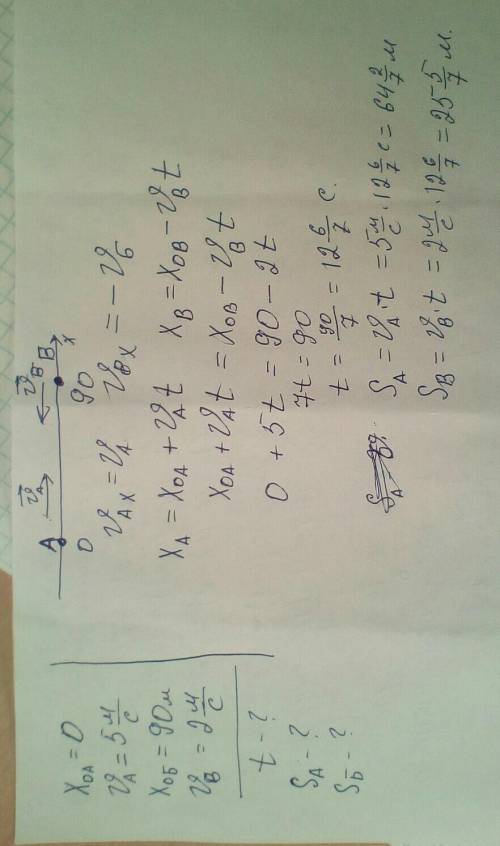 X₀A = 0
𝒱A = 5 м/с
X₀Б = 90 м
𝒱B = 2 м/с
t - ?
SA - ?
SБ - ?
𝒱⃗A 𝒱⃗B
A B x
0 90
𝒱AX = 𝒱A 𝒱BX = -𝒱Б
XA = X₀A + 𝒱A t XB = X₀B - 𝒱B t
X₀A + 𝒱A t = X₀B - 𝒱B t
0 + 5t = 90 - 2t
7t = 90
t = 90/7 = 12 6/7 с.
SA = 𝒱A · t = 5 м/с · 12 6/7 с = 64 2/7 м
SB = 𝒱B · t = 2 м/с · 12 6/7 = 25 5/7 м.